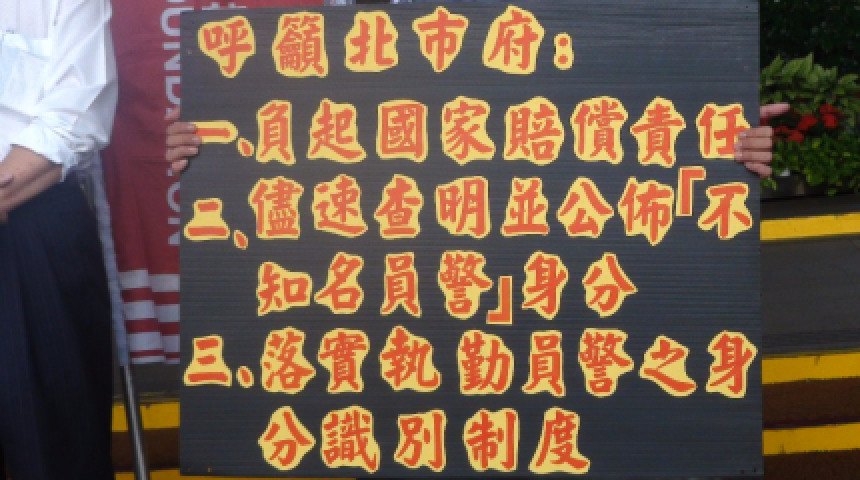 呼籲北市府:
一、負起國家賠償責任
二、儘速查明並公佈「不
知名員警」身分
三、落實執勤員警之身
分識別制度